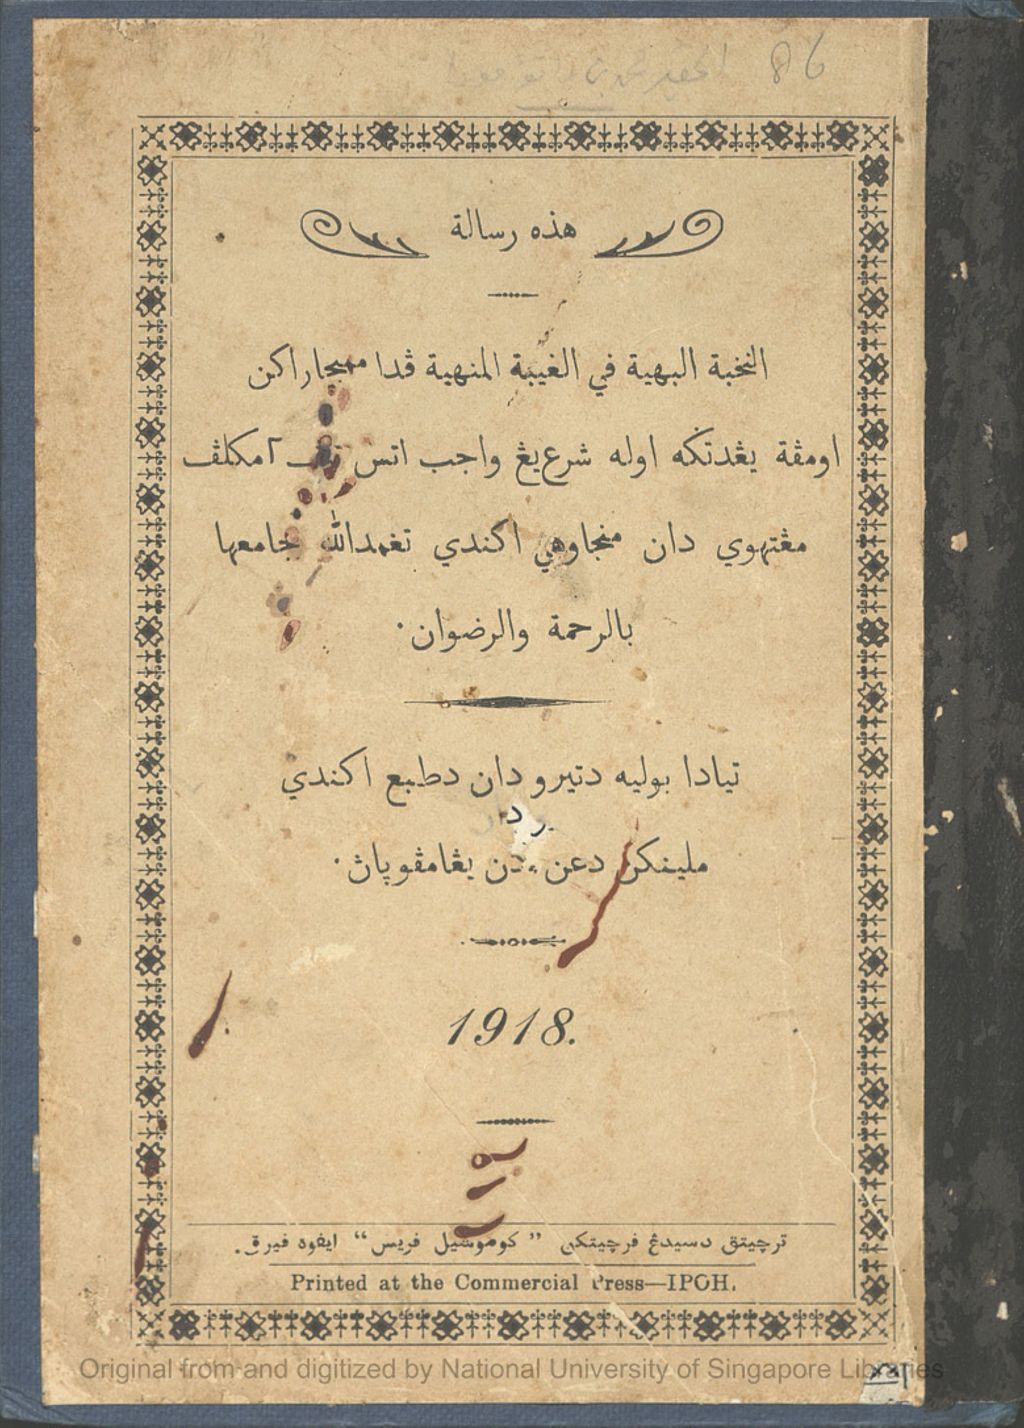 86
هذه رسالة
النخبة البهية في الغيبة المنهية ڤدا ممبچاراکن
اومڤة يڠدتڬه اوله شرع يڠ واجب اتس تيف٢ مکلف
مڠتهوي دان منجاوهي اکندي تغمدالله جامعها
بالرحمة والرضوان٠
تيادا بوليه دتيرو دان دطبع اکندي
ملينکن دڠن يڠامڤوپاڽ٠
1918.
ترچيتق دسيدڠ فرچيتکن ” کومرشيل فريس “ ايفوه فيرق.
Printed at the Commercial Press—IPOH.
Original from and digitized by National University of Singapore Libraries